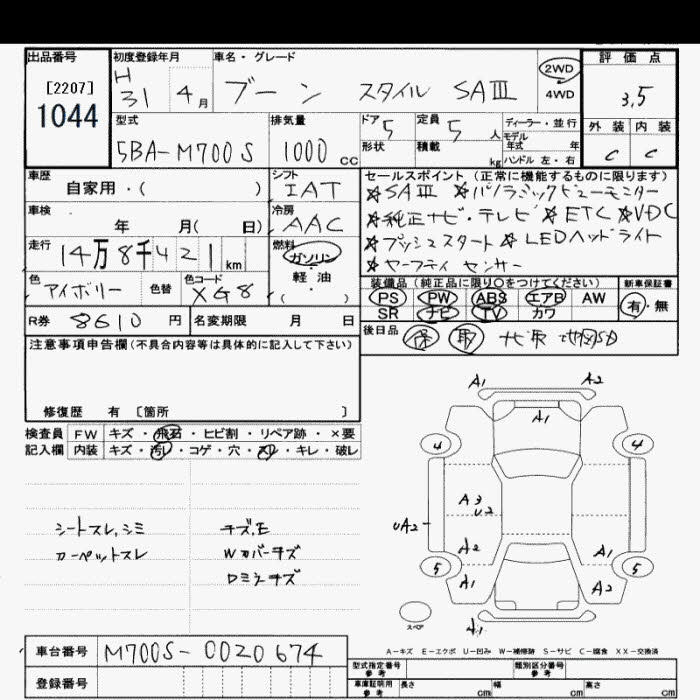 出品番号 初度登録年月 車名・グレード 2WD 4WD 評価点
[2207]
1044
H 31 4月 ブーン スタイル SAⅢ 3.5
型式 排気量 ドア 5 定員 5人 ディーラー・並行 外装 内装
5BA-M700S 1000cc 形状 積載 kg モデル年式 年 ハンドル 左・右 C C
車歴 シフト セールスポイント(正常に機能するものに限ります)
自家用・( ) IAT ☆SAⅢ ☆パノラミックビューモニター
車検 年 月( 日) 冷房 AAC ☆純正ナビ・テレビ ☆ETC ☆VDC
走行 14万8千421km 燃料 ガソリン・軽油・( ) ☆プッシュスタート ☆LEDヘッドライト
☆セーフティセンサー
色 アイボリー 色替 色コード XG8 装備品(純正品に限り○をつけてください) 新車保証書
PS PW ABS エアB AW 有・無
SR ナビ TV カワ
R券 8610円 名変期限 月 日 後日品 保 取
注意事項申告欄(不具合内容等は具体的に記入して下さい)
修復歴 有 [箇所 ]
検査員 FW キズ・飛石・ヒビ割・リペア跡・×要
記入欄 内装 キズ・汚れ・コゲ・穴・スレ・キレ・破レ
シートスレ,シミ
カーペットスレ
チズ,E
Wカバーキズ
A1 A2
A1
4 4
A3
U2
UA2
A2 A1
5 5
A1 A2
スペア
A1
A-キズ E-エクボ U-凹み W-補修跡 S-サビ C-腐食 XX-交換済
車台番号 M700S-0020674
登録番号
型式指定番号 参考 類別区分番号 参考
車庫証明用 参考 長さ cm 幅 cm 高さ cm